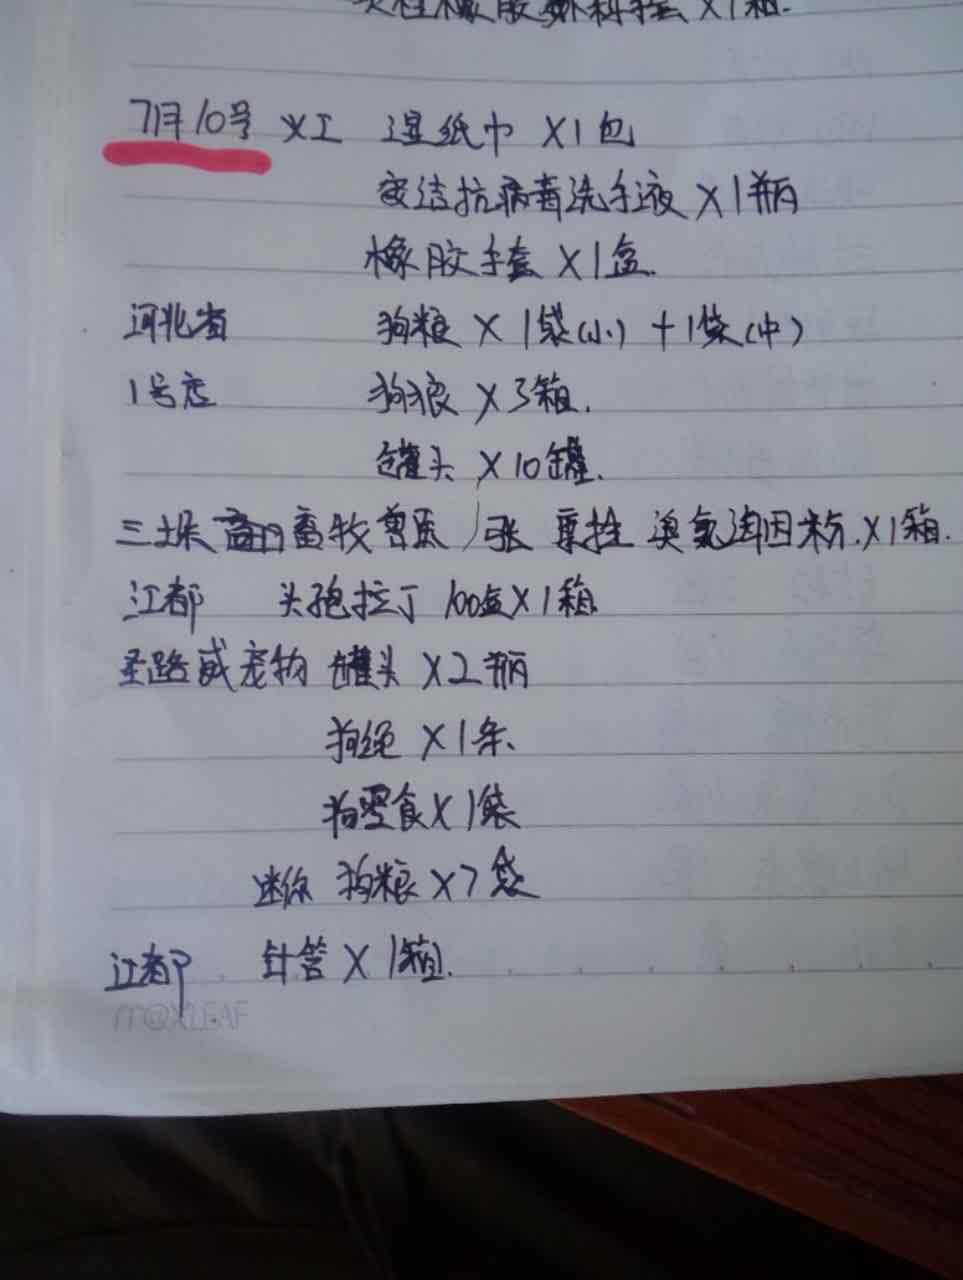 橡胶外科手套 X1箱.
7月10号 义工 湿纸巾 X1包
安洁抗病毒洗手液 X1瓶
橡胶手套 X1盒.
河北省 狗粮 X 1袋(小) + 1袋(中)
1号店 狗狼 X 3箱.
罐头 X10罐.
三垛 畜牧兽医 / 张 臭氯海因粉.X1箱.
江都 头孢拉丁 100盒X1箱
圣路威宠物 罐头 X2瓶
狗绳 X1条.
狗零食X1袋
迷你 狗粮 X7袋
江都 针管 X 1箱.
M@XLEAF